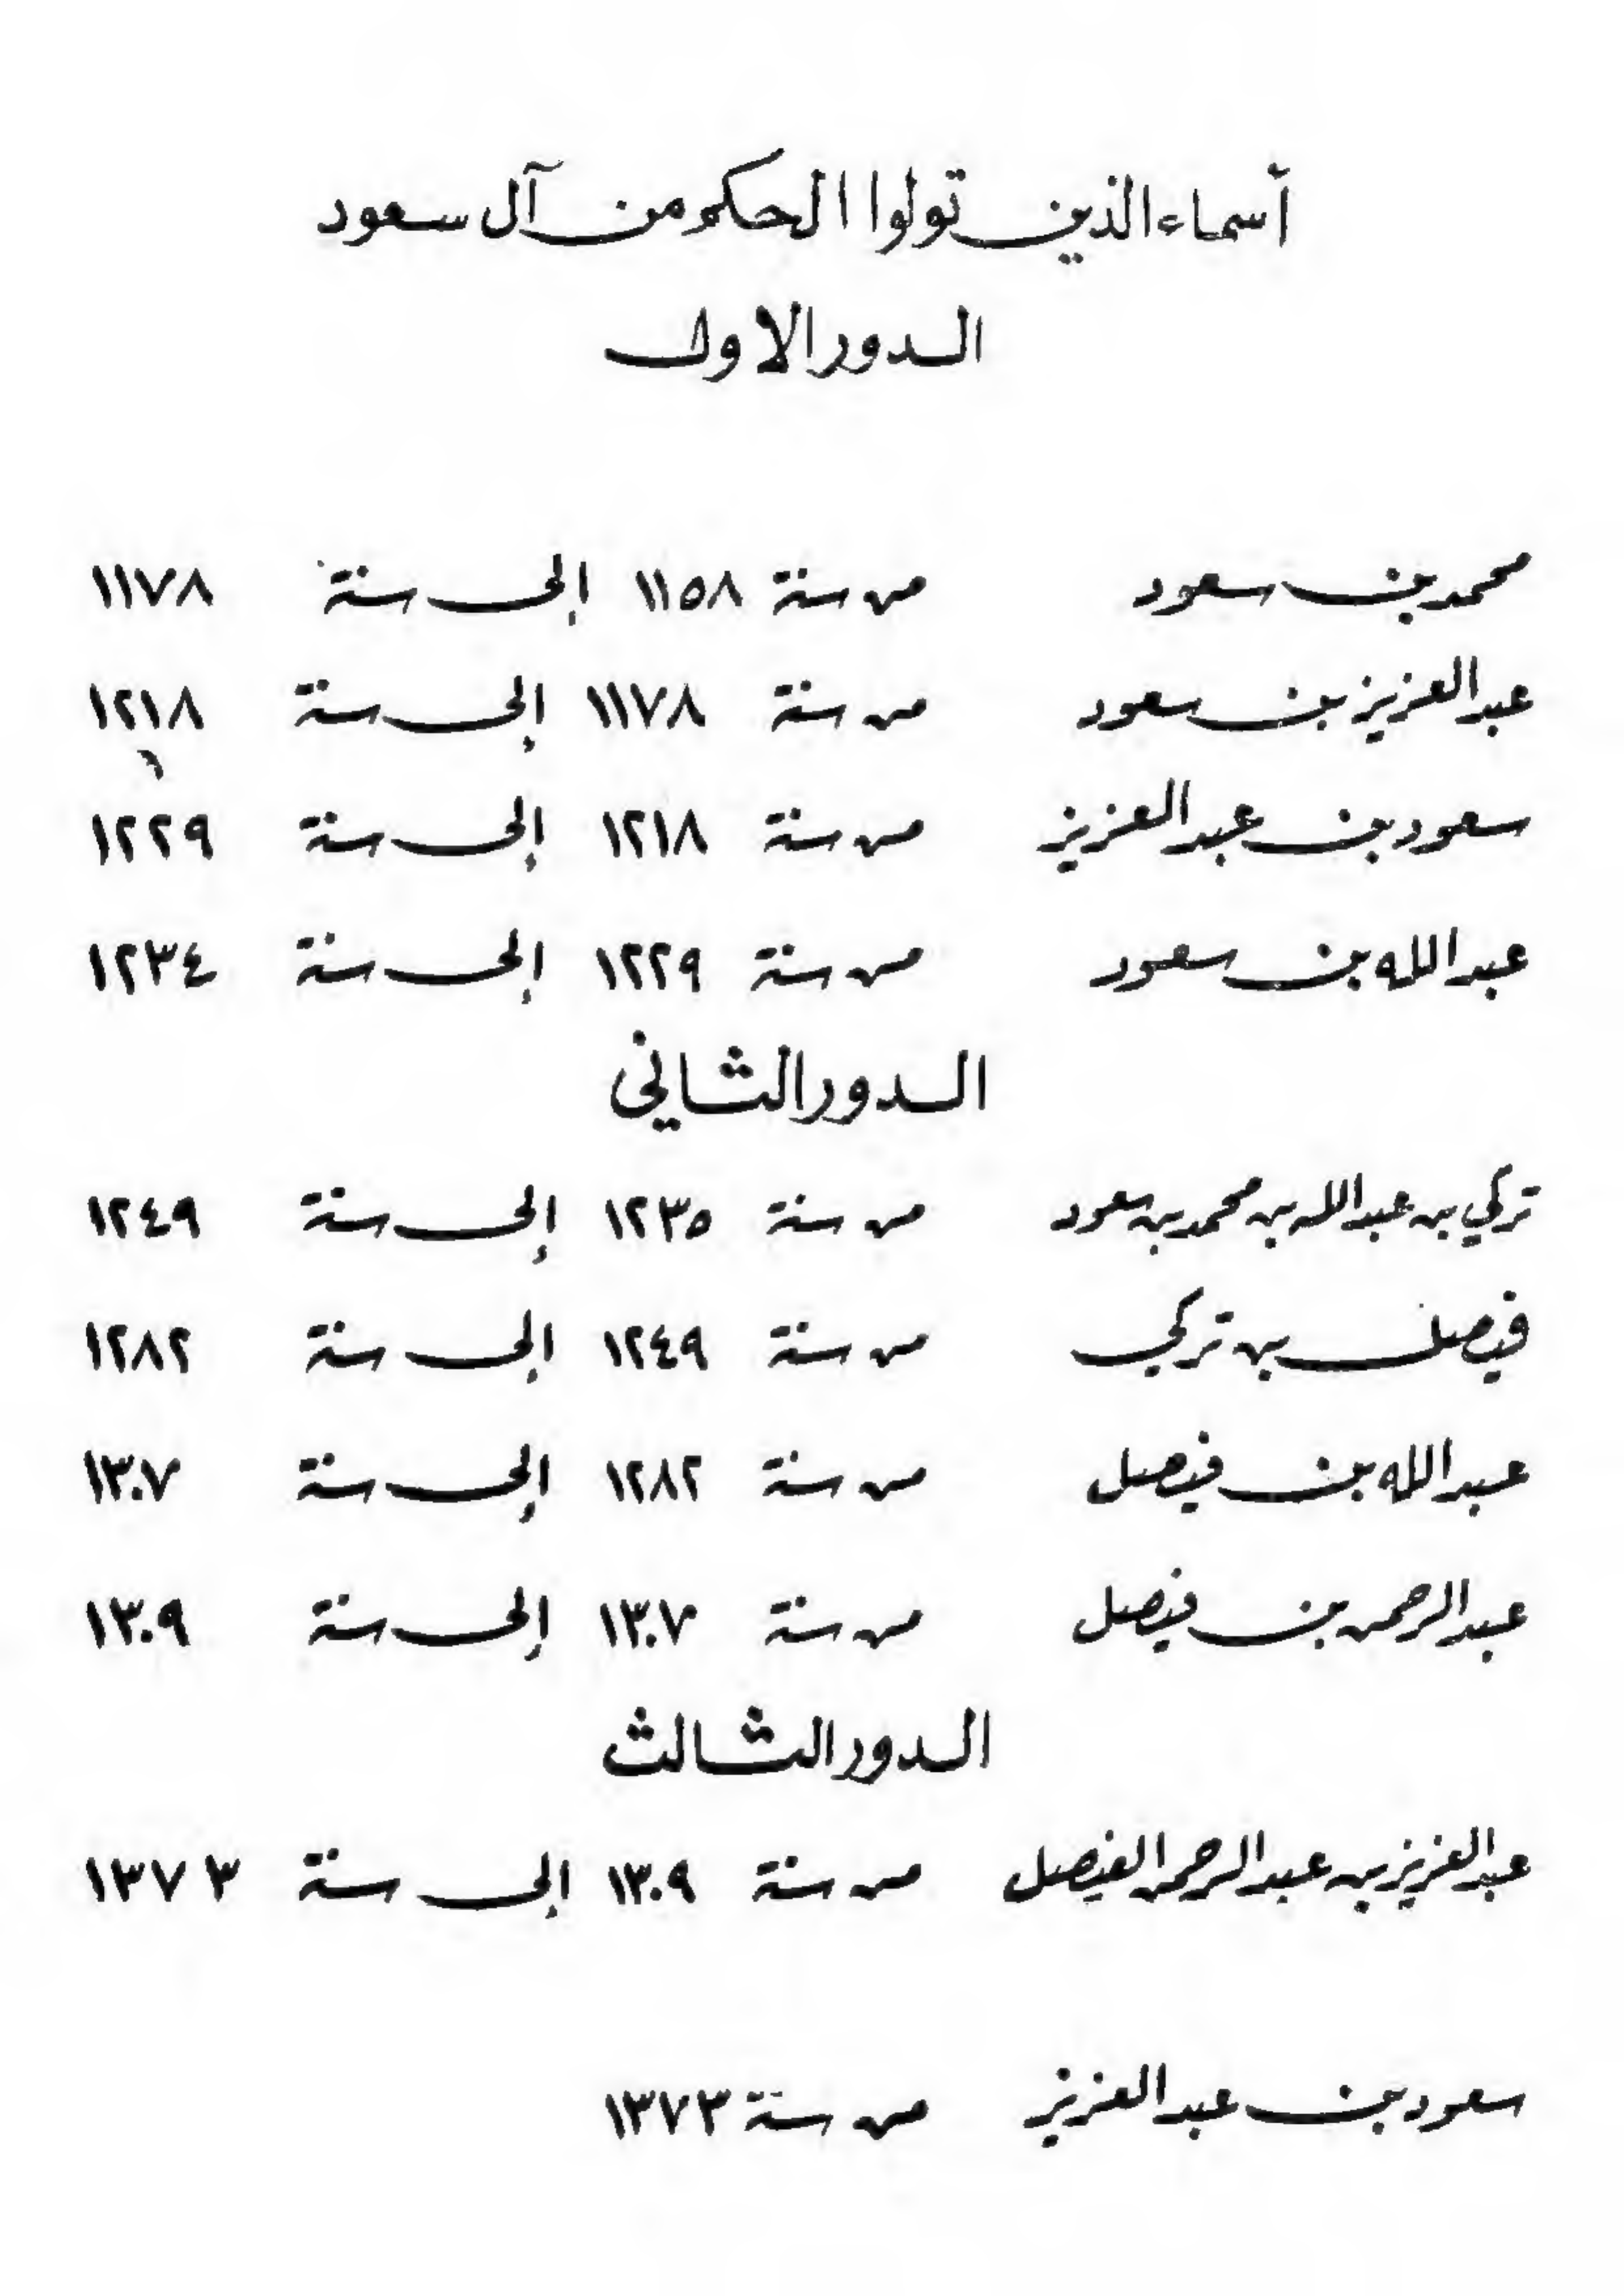 أسماء الذين تولوا الحكم من آل سعود
الدور الاول
محمد بن سعود من سنة ١١٥٨ إلى سنة ١١٧٨
عبد العزيز بن سعود من سنة ١١٧٨ إلى سنة ١٢١٨
سعود بن عبد العزيز من سنة ١٢١٨ إلى سنة ١٢٢٩
عبد الله بن سعود من سنة ١٢٢٩ إلى سنة ١٢٣٤
الدور الثاني
تركي بن عبد الله بن محمد بن سعود من سنة ١٢٣٥ إلى سنة ١٢٤٩
فيصل بن تركي من سنة ١٢٤٩ إلى سنة ١٢٨٢
عبد الله بن فيصل من سنة ١٢٨٢ إلى سنة ١٣٠٧
عبد الرحمن بن فيصل من سنة ١٣٠٧ إلى سنة ١٣٠٩
الدور الثالث
عبد العزيز بن عبد الرحمن الفيصل من سنة ١٣٠٩ إلى سنة ١٣٧٣
سعود بن عبد العزيز من سنة ١٣٧٣